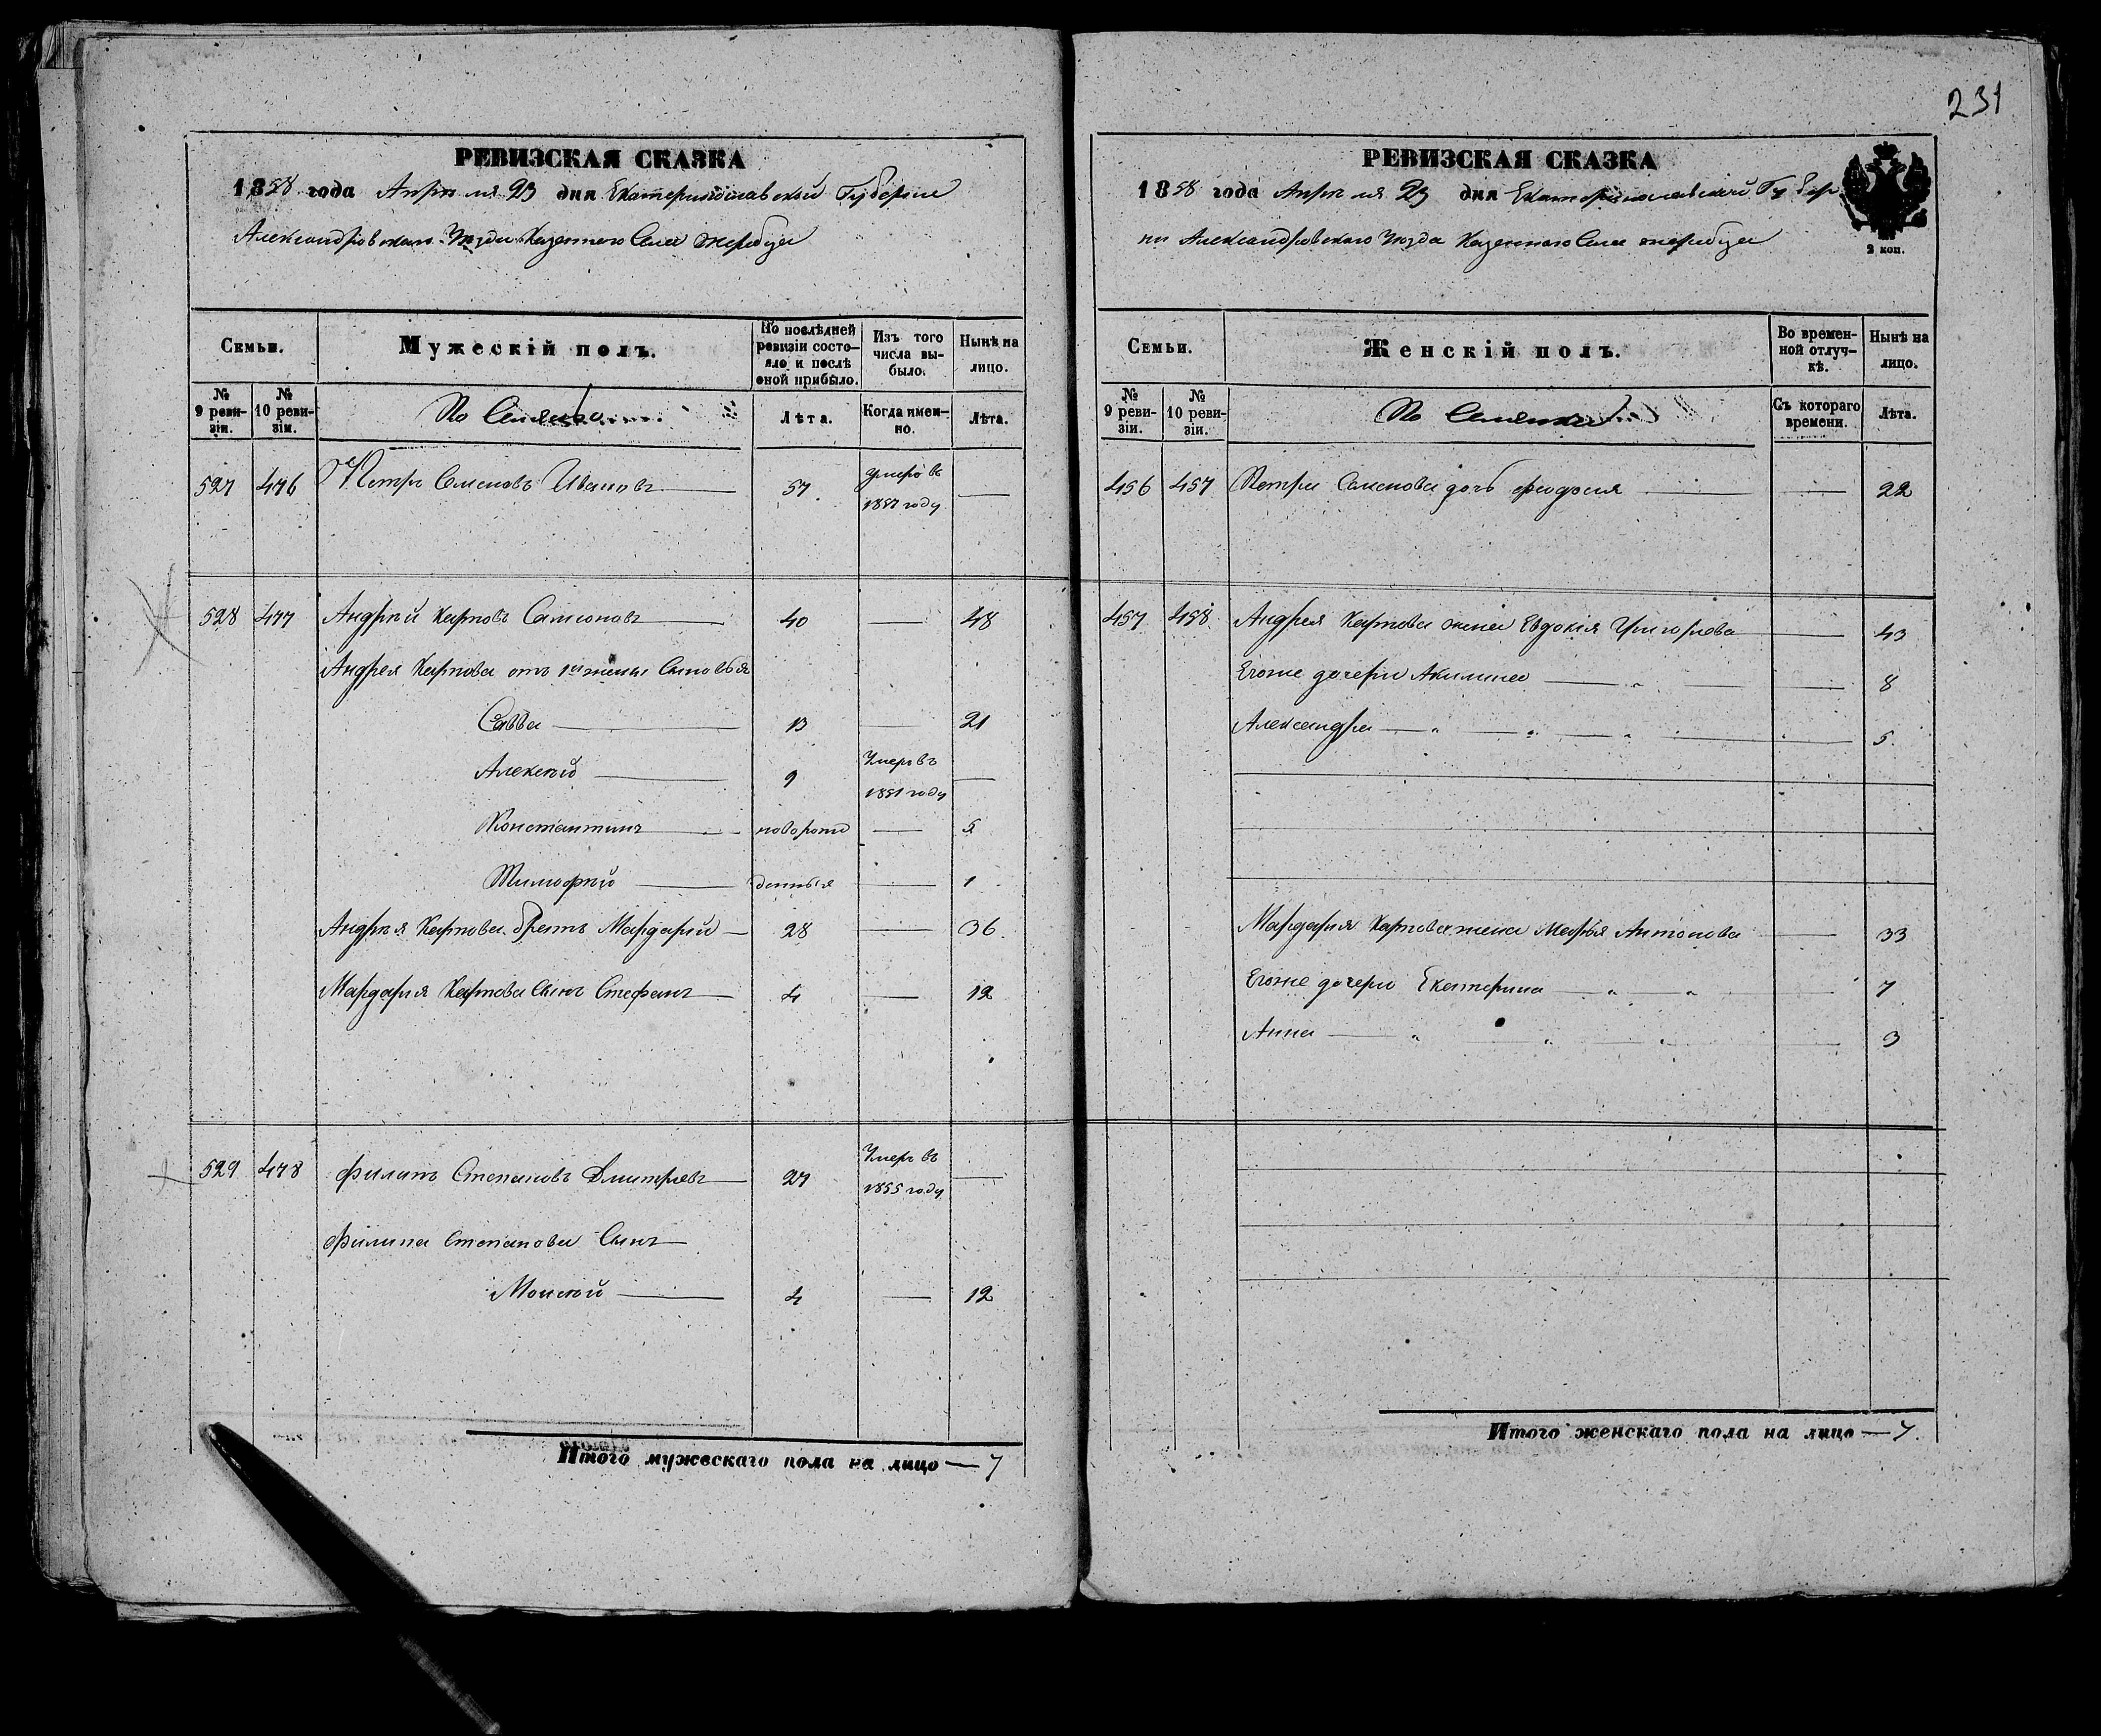 231
РЕВИЗСКАЯ СКАЗКА
1858 года Апреля 23 дня Екатеринославской Губернии
Александровскаго Уезда Казеннаго Села Жеребца
Семьи.
Мужескій полъ.
По послѣдней ревизіи состояло и послѣ оной прибыло.
Изъ того числа выбыло.
Нынѣ на лицо.
№ 9 ревизіи.
№ 10 ревизіи.
Лѣта.
Когда именно.
Лѣта.
527 476 Петръ Семеновъ Ивановъ — 57. умеръ въ 1857 году —
528 477 Андрей Карповъ Самсоновъ — 40 — 48
Андрея Карпова отъ 1й жены Сыновья
Савва — 13 — 21
Алексей — 9 Умеръ въ 1851 году —
Константинъ — новорож — 5
Тимофей — денныя — 1
Андрея Карпова братъ Мардарий — 28 — 36.
Мардария Карпова Сынъ Стефанъ — 4 — 12
529 478 Филипъ Степановъ Дмитриевъ — 27 Умеръ въ 1855 году —
Филипа Степанова Сынъ —
Моисей — 4 — 12
Итого мужескаго пола на лицо — 7
РЕВИЗСКАЯ СКАЗКА
1858 года Апреля 23 дня Екатеринославской Губер
нии Александровскаго Уезда Казеннаго Села Жеребца
2 коп.
Семьи.
Женскій полъ.
Во временной отлучкѣ.
Нынѣ на лицо.
№ 9 ревизіи.
№ 10 ревизіи.
Съ котораго времени.
Лѣта.
456 457 Петра Семенова дочь Феодосия — — 22
457 458 Андрея Карпова жена Евдокия Григорьева — 43
Егоже дочери Акилина — " — — 8
Александра — " — " — " — 5.
Мардария Карпова жена Марья Антонова — 33
Егоже дочери Екатерина — " — " — 7
Анна — " — " — " — 3
Итого женскаго пола на лицо — 7.